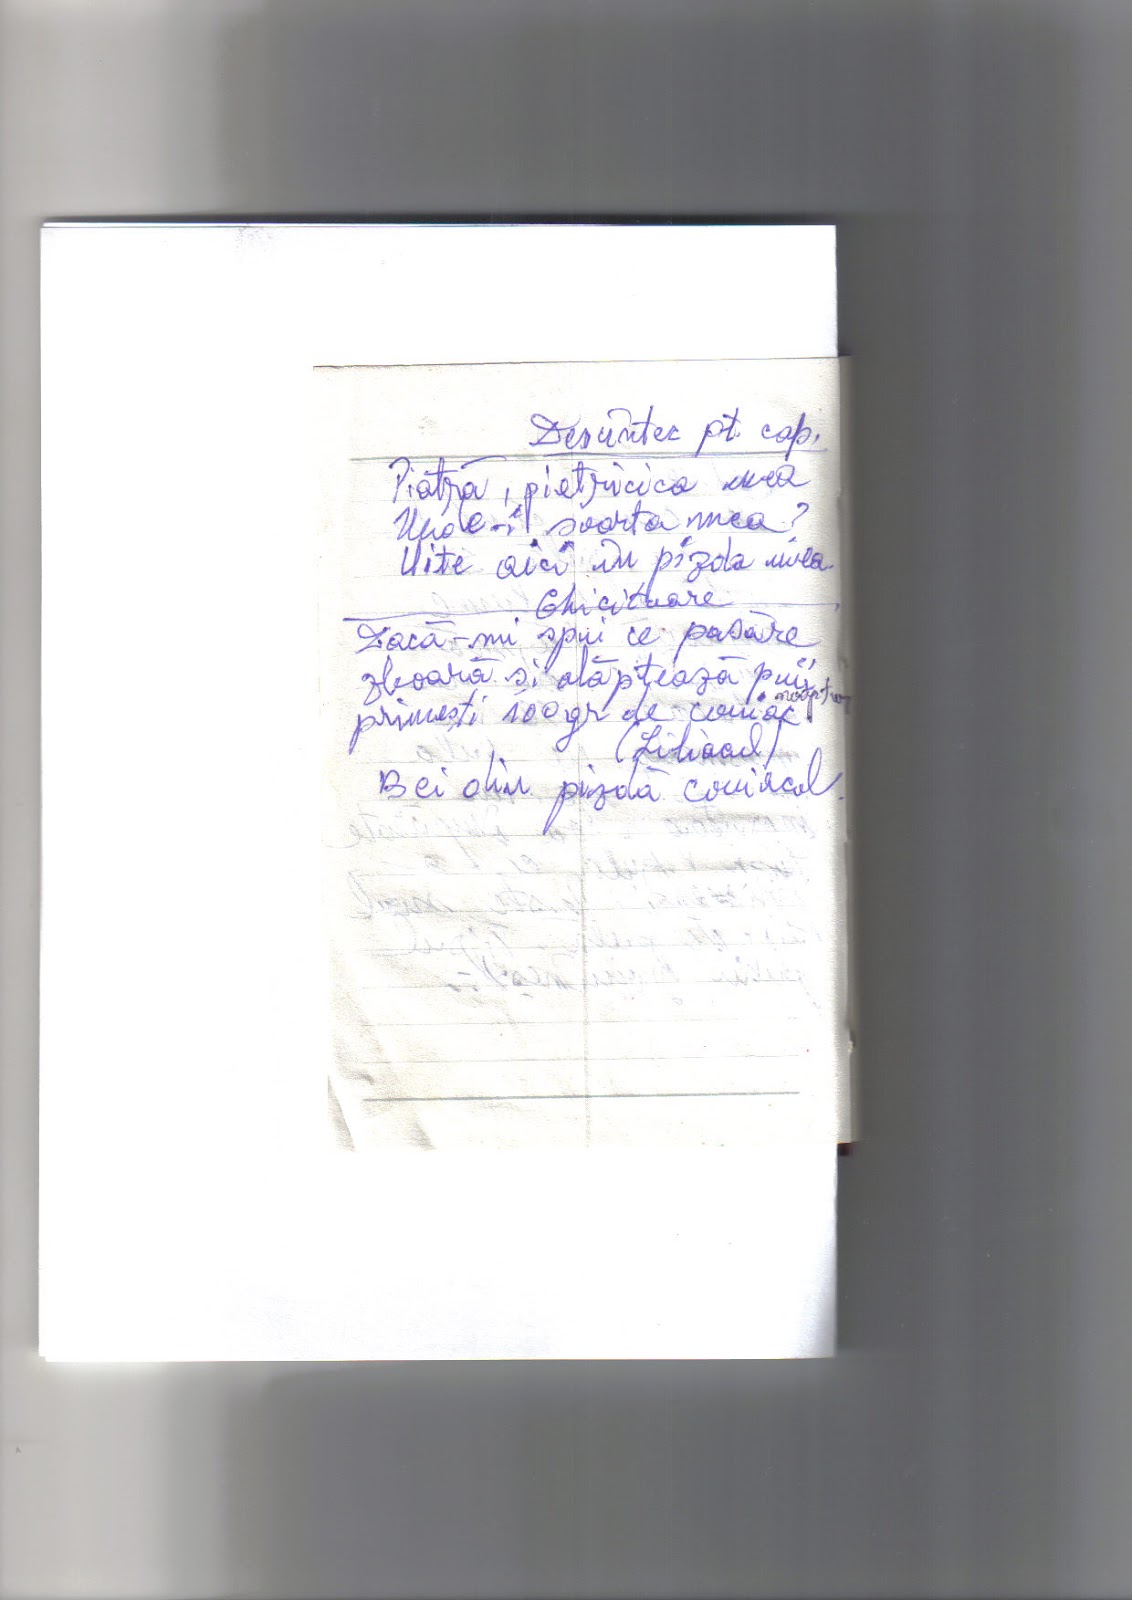 Descântec pt. cap.
Piatră, pietricica mea
Unde-i soarta mea?
Uite aici în pizda mea.
Ghicitoare
Dacă-mi spui ce pasăre
zboară și alăptează puii
primești 100gr de coniac.
(Liliacul)
Bei din pizdă coniacul.